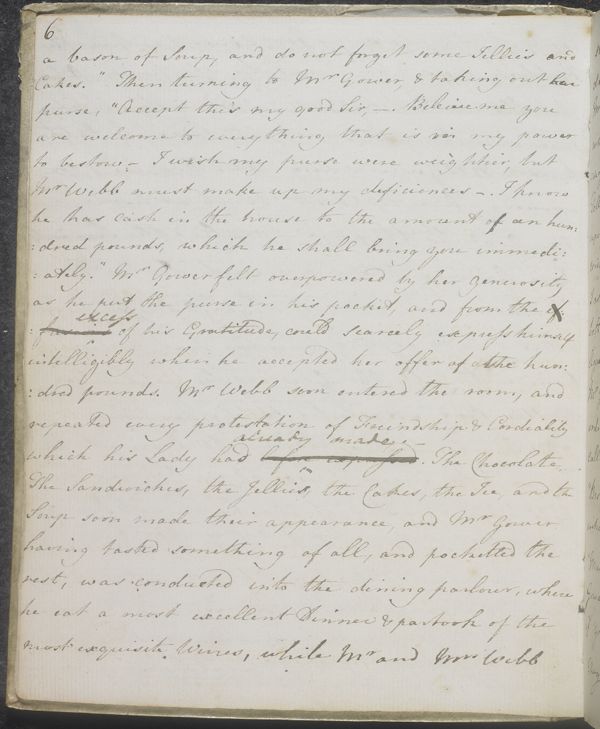 6
a bason of Soup, and do not forget some Jellies and
Cakes." Then turning to Mr Gower, & taking out her
purse, "Accept this my good Sir, —. Beleive me you
are welcome to everything that is in my power
to bestow. — I wish my purse were weightier, but
Mr Webb must make up my deficiences —. I know
he has cash in the house to the amount of an hun:
:dred pounds, which he shall bring you immedi:
:ately." Mr Gower felt overpowered by her generosity
as he put the purse in his pocket, and from the
excess
of his Gratitude, could scarcely express himself
intelligibly when he accepted her offer of the hun:
:dred pounds. Mr Webb soon entered the room, and
repeated every protestation of Freindship & Cordiality
already made. —
which his Lady had . The Chocolate,
The Sandwiches, the Jellies, the Cakes, the Ice, and the
Soup soon made their appearance, and Mr Gower
having tasted something of all, and pocketted the
rest, was conducted into the dining parlour, where
he eat a most excellent Dinner & partook of the
most exquisite Wines, while Mr and Mrs Webb